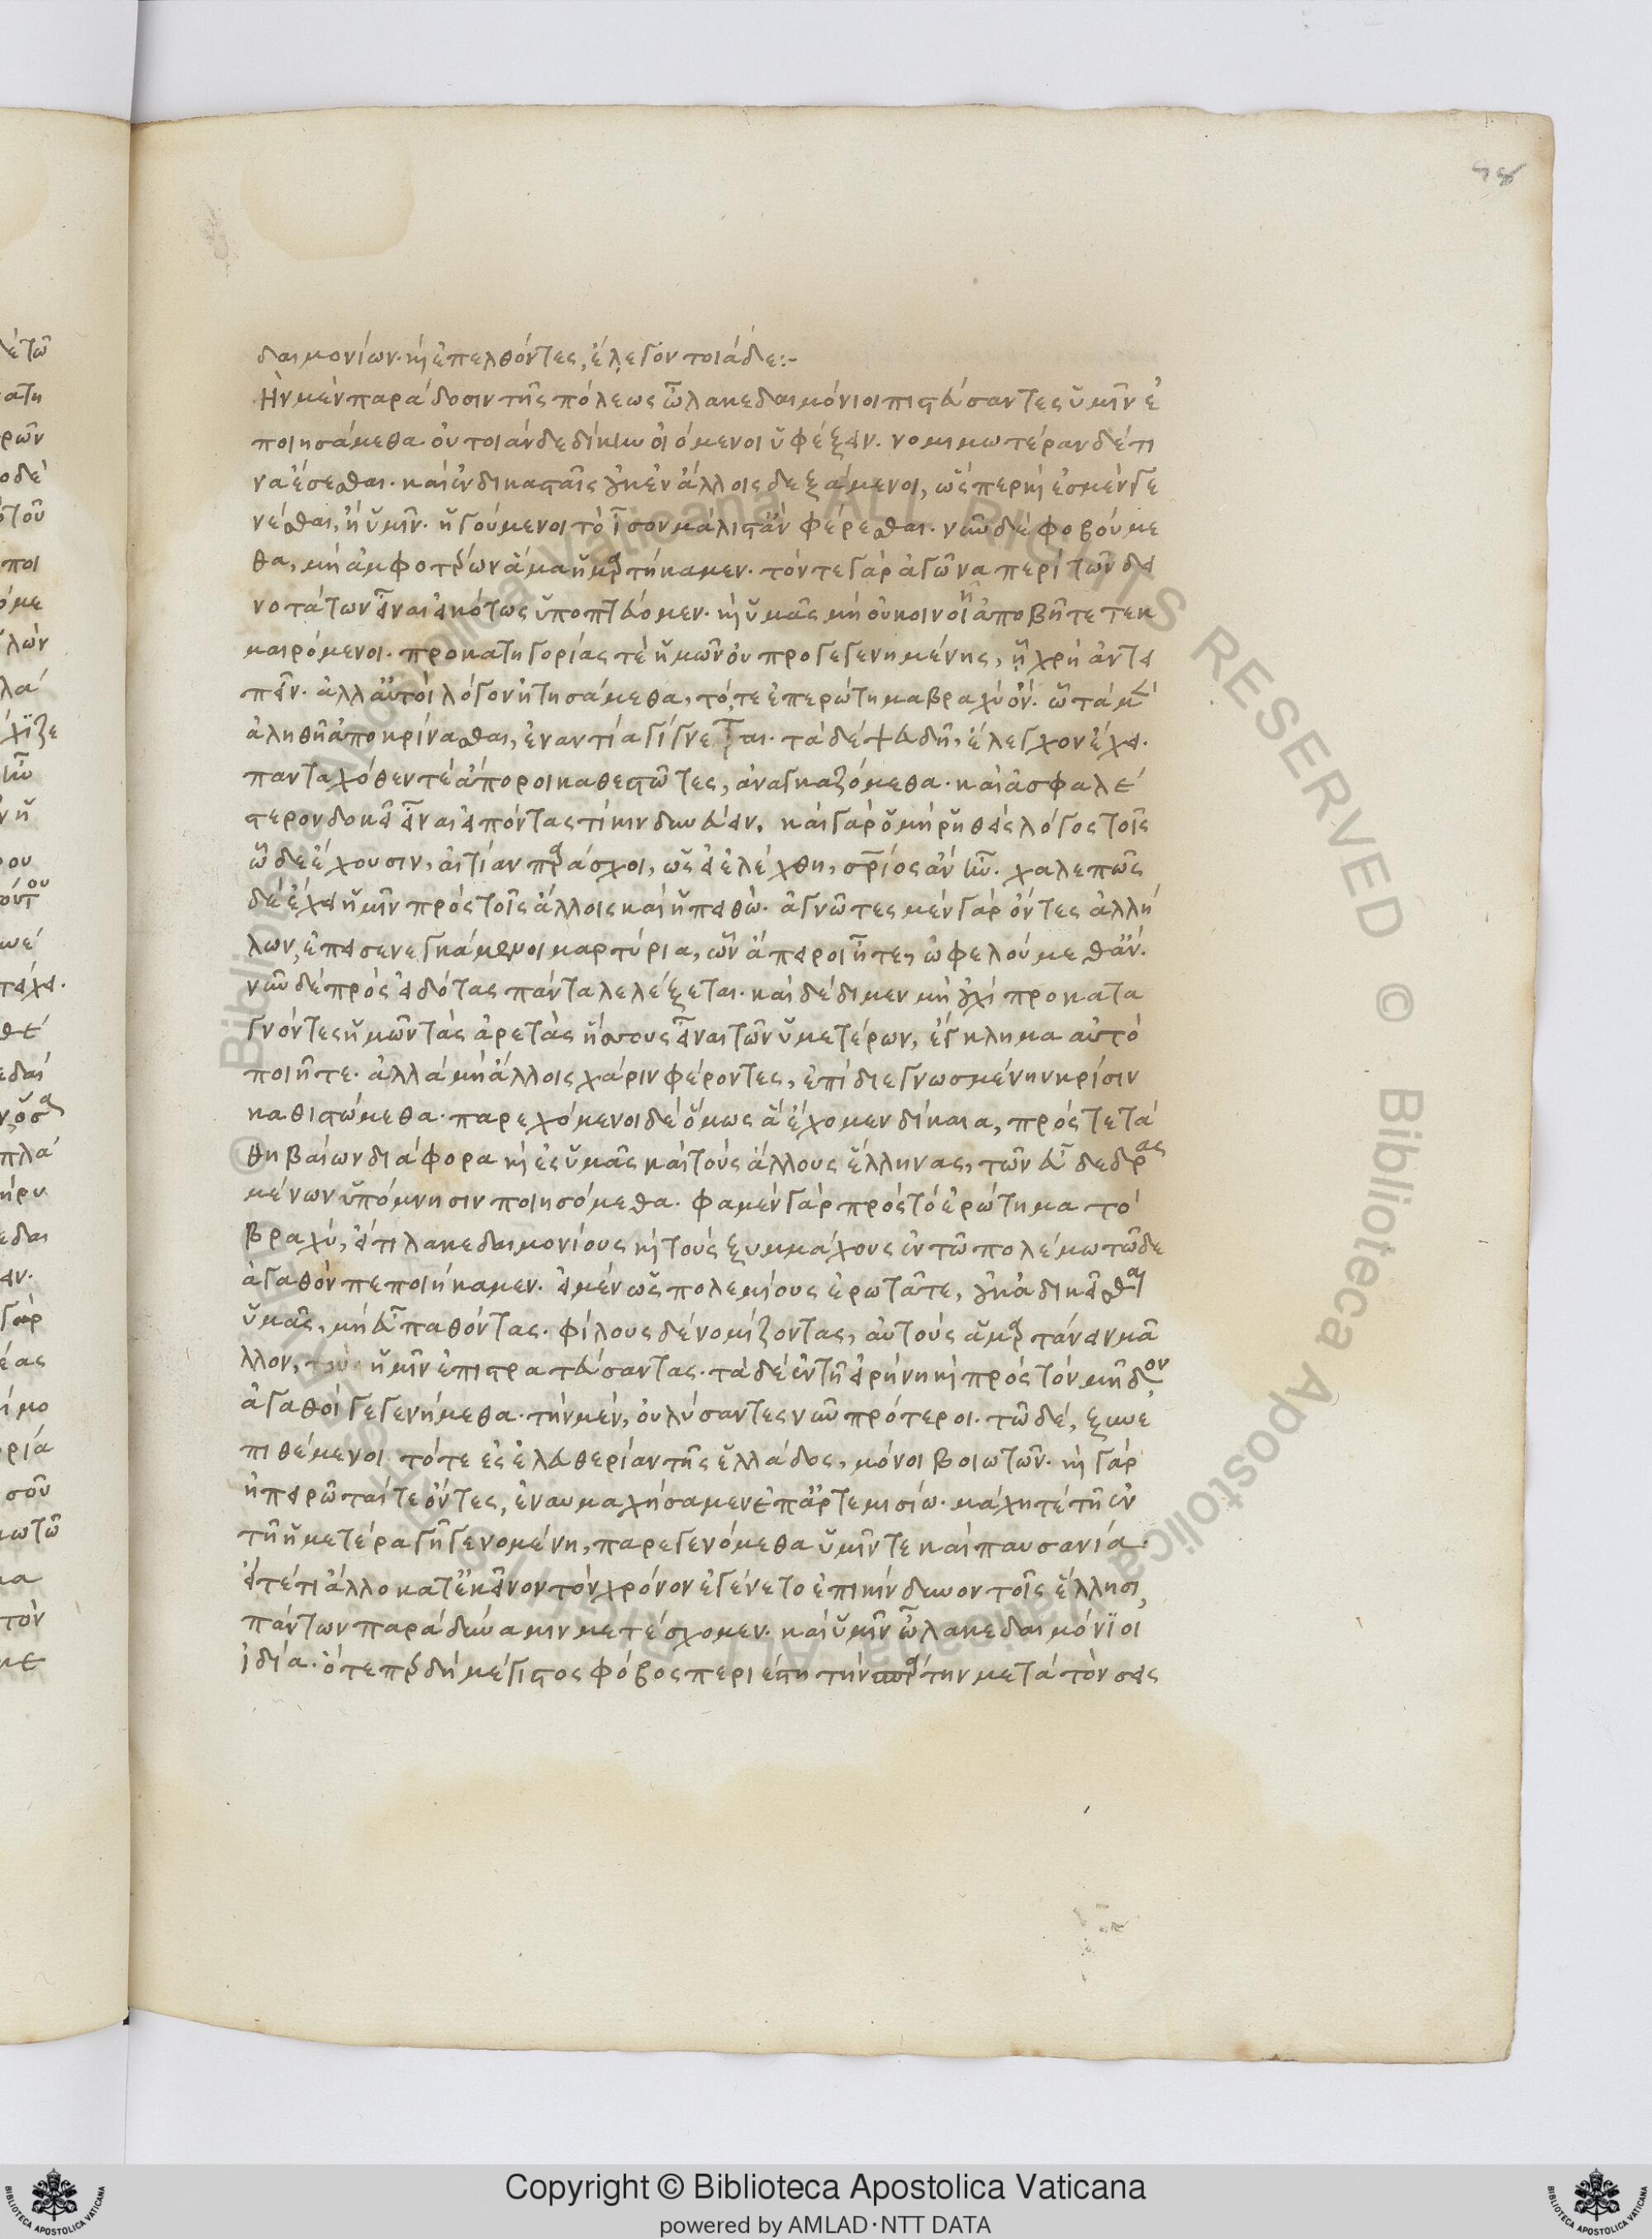 98
δαιμονίων· καὶ ἐπελθόντες, ἔλεγον τοιάδε:-
Ἡν μὲν παράδοσιν τῆς πόλεως ὦ λακεδαιμόνιοι πιστεύσαντες ὑμῖν ἐ
ποιησάμεθα· οὐ τοιάνδε δίκην οἰόμενοι ὑφέξειν· νομιμωτέραν δέ τι
να ἔσεσθαι· καὶ ἐν δικασταῖς οὐκ ἐν ἄλλοις δεξάμενοι, ὥσπερ καὶ ἐσμὲν γε
νέσθαι, ἢ ὑμῖν· ἡγούμενοι τὸ ἴσον μάλιστ' ἂν φέρεσθαι· νῦν δὲ φοβούμε
θα, μὴ ἀμφοτέρων ἅμα ἡμαρτήκαμεν· τόν τε γὰρ ἀγῶνα περὶ τῶν δει
νοτάτων εἶναι εἰκότως ὑποπτεύομεν· καὶ ὑμᾶς μὴ οὐ κοινοὶ ἀποβῆτε τεκ
μαιρόμενοι· προκατηγορίας τὲ ἡμῶν οὐ προγεγενημένης, ᾗ χρὴ ἀντει
πεῖν· ἀλλ' αὐτοὶ λόγον ᾐτησάμεθα, τό, τε ἐπερώτημα βραχὺ ὄν· ᾧ τὰ μὲν
ἀληθῆ ἀποκρίνασθαι, ἐναντία γίγνεται· τὰ δὲ ψευδῆ, ἔλεγχον ἔχει·
πανταχόθεν τὲ ἄποροι καθεστῶτες, ἀναγκαζόμεθα· καὶ ἀσφαλέ
στερον δοκεῖ εἶναι εἰπόντας τί κινδυνεύειν· καὶ γὰρ ὁ μὴ ῥηθεὶς λόγος τοῖς
ὧδε ἔχουσιν, αἰτίαν παράσχοι, ὡς εἰ ἐλέχθη, σωτήριος ἂν ἦν· χαλεπῶς
δὲ ἔχει ἡμῖν πρὸς τοῖς ἄλλοις καὶ ἡ πειθώ· ἀγνῶτες μὲν γὰρ ὄντες ἀλλή
λων, ἐπεισενεγκάμενοι μαρτύρια, ὧν ἄπειροι ἦτε, ὠφελούμεθ' ἄν·
νῦν δὲ πρὸς εἰδότας πάντα λελέξεται· καὶ δέδιμεν μὴ οὐχὶ προκατα
γνόντες ἡμῶν τὰς ἀρετὰς ἥσσους εἶναι τῶν ὑμετέρων, ἔγκλημα αὐτὸ
ποιῆτε· ἀλλὰ μὴ ἄλλοις χάριν φέροντες, ἐπὶ διεγνωσμένην κρίσιν
καθιστώμεθα· παρεχόμενοι δὲ ὅμως ἃ ἔχομεν δίκαια, πρός τε τὰ
θηβαίων διάφορα καὶ ἐς ὑμᾶς καὶ τοὺς ἄλλους ἕλληνας, τῶν εὖ δεδρας
μένων ὑπόμνησιν ποιησόμεθα· φαμὲν γὰρ πρὸς τὸ ἐρώτημα τὸ
βραχύ, εἴ τι λακεδαιμονίους καὶ τοὺς ξυμμάχους ἐν τῷ πολέμω τῶδε
ἀγαθὸν πεποιήκαμεν· εἰ μὲν ὡς πολεμίους ἐρωτᾶτε, οὐκ ἀδικεῖσθαι
ὑμᾶς, μὴ εὖ παθόντας· φίλους δὲ νομίζοντας, αὐτοὺς ἁμαρτάνειν μᾶ
λλον, τοὺς ἡμῖν ἐπιστρατεύσαντας· τὰ δὲ ἐν τῆ εἰρήνη καὶ πρὸς τὸν μῆδον,
ἀγαθοὶ γεγενήμεθα· τὴν μὲν, οὐ λύσαντες νῦν πρότεροι· τῶ δὲ, ξυνε
πιθέμενοι τότε ἐς ἐλευθερίαν τῆς ἑλλάδος, μόνοι βοιωτῶν· καὶ γὰρ
ἠπειρῶταί τε ὄντες, ἐναυμαχήσαμεν ἐπ' ἀρτεμισίω· μάχη τὲ τῆ ἐν
τῆ ἡμετέρα γῆ γενομένη, παρεγενόμεθα ὑμῖν τε καὶ παυσανία·
εἴ τέ τι ἄλλο κατ' ἐκεῖνον τὸν χρόνον ἐγένετο ἐπικίνδυνον τοῖς ἕλλησι,
πάντων παρὰ δύναμιν μετέσχομεν· καὶ ὑμῖν ὦ λακεδαιμόνϊοι
ἰδία· ὅτε περ δὴ μέγιστος φόβος περιέστη τὴν σπάρτην μετὰ τὸν σεις
Copyright © Biblioteca Apostolica Vaticana
powered by AMLAD·NTT DATA